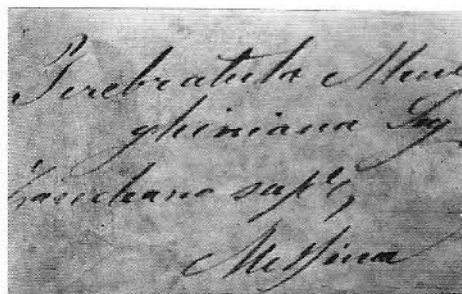 Terebratula Mene
ghiniana Seg
Zancleano sup.e
Messina